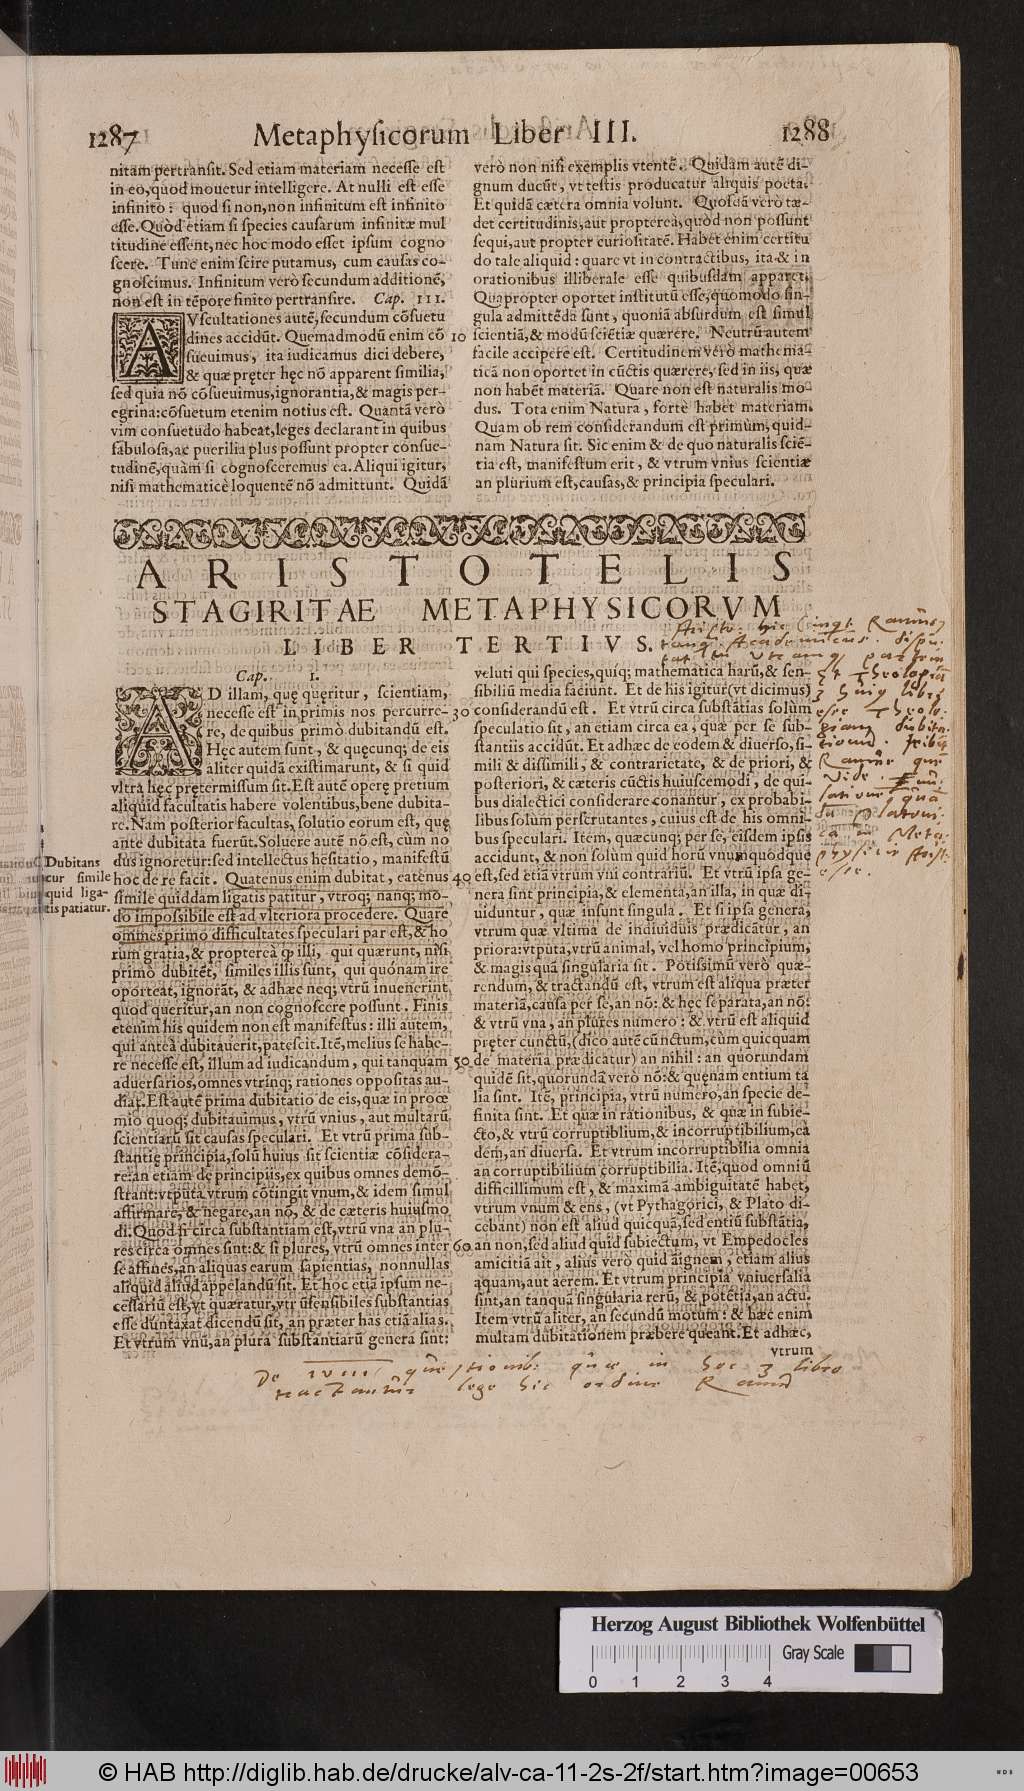 1287 Metaphysicorum Liber III. 1288
nitam pertransit. Sed etiam materiam necesse est
in eo, quod mouetur intelligere. At nulli est esse
infinito: quod si non, non infinitum est infinito
esse. Quòd etiam si species causarum infinitæ mul
titudine essent, nec hoc modo esset ipsum cogno
scere. Tunc enim scire putamus, cum causas co-
gnoscimus. Infinitum verò secundum additionẽ,
non est in tẽpore finito pertransire. Cap. III.
AVscultationes autẽ, secundum cõsuetu
dines accidũt. Quemadmodũ enim cõ
sueuimus, ita iudicamus dici debere,
& quæ pręter hęc nõ apparent similia,
sed quia nõ cõsueuimus, ignorantia, & magis per-
egrina: cõsuetum etenim notius est. Quantã verò
vim consuetudo habeat, leges declarant in quibus
fabulosa, ac puerilia plus possunt propter consue-
tudinẽ, quàm si cognosceremus ea. Aliqui igitur,
nisi mathematicè loquentẽ nõ admittunt. Quidã
verò non nisi exemplis vtentẽ. Quidam autẽ di-
gnum ducũt, vt testis producatur aliquis poeta.
Et quidã cætera omnia volunt. Quosdã verò tæ-
det certitudinis, aut propterea, quòd non possunt
sequi, aut propter curiositatẽ. Habet enim certitu
do tale aliquid: quare vt in contractibus, ita & in
orationibus illiberale esse quibusdam apparet.
Quapropter oportet institutũ esse, quomodo sin-
gula admittẽda sunt, quoniã absurdum est simul
10 scientiã, & modũ sciẽtiæ quærere. Neutrũ autem
facile accipere est. Certitudinem verò mathema-
ticã non oportet in cũctis quærere, sed in iis, quæ
non habẽt materiã. Quare non est naturalis mo-
dus. Tota enim Natura, fortè habet materiam.
Quam ob rem considerandum est primùm, quid-
nam Natura sit. Sic enim & de quo naturalis sciẽ-
tia est, manifestum erit, & vtrum vnius scientiæ
an plurium est, causas, & principia speculari.
ARISTOTELIS
STAGIRITAE METAPHYSICORVM
LIBER TERTIVS.
Cap. I.
AD illam, quę quęritur, scientiam,
necesse est in primis nos percurre-
re, de quibus primò dubitandũ est.
Hęc autem sunt, & quęcunq; de eis
aliter quidã existimarunt, & si quid
vltra hęc prętermissum sit. Est autẽ operę pretium
aliquid facultatis habere volentibus, bene dubita-
re. Nam posterior facultas, solutio eorum est, quę
ante dubitata fuerũt. Soluere autẽ nõ est, cum no
dus ignoretur: sed intellectus hęsitatio, manifestũ
hoc de re facit. Quatenus enim dubitat, eatenus
simile quiddam ligatis patitur, vtroq; nanq; mo-
do impossibile est ad vlteriora procedere. Quare
omnes primo difficultates speculari par est, & ho
rum gratia, & propterea qp illi, qui quærunt, nisi
primò dubitẽt, similes illis sunt, qui quónam ire
oporteat, ignorãt, & adhæc neq; vtrũ inuenerint
quod queritur, an non cognoscere possunt. Finis
etenim his quidem non est manifestus: illi autem,
qui anteà dubitauerit, patescit. Itẽ, melius se habe-
re necesse est, illum ad iudicandum, qui tanquam
aduersarios, omnes vtrinq; rationes oppositas au-
diat. Est autẽ prima dubitatio de eis, quæ in proœ
mio quoq; dubitauimus, vtrũ vnius, aut multarũ
scientiarũ sit causas speculari. Et vtrũ prima sub-
stantię principia, solũ huius sit scientiæ cõsidera-
re: an etiam de principiis, ex quibus omnes demõ-
strant: vtputa vtrum cõtingit vnum, & idem simul
affirmare, & negare, an nõ, & de cæteris huiusmo
di. Quod si circa substantiam est, vtrũ vna an plu-
res circa omnes sint: & si plures, vtrũ omnes inter
se affines, an aliquas earum sapientias, nonnullas
aliquid aliud appelandũ sit. Et hoc etiã ipsum ne-
cessariũ est, vt quæratur, vtr ũsensibiles substantias
esse duntaxat dicendũ sit, an præter has etiã alias.
Et vtrum vnũ, an plura substantiarũ genera sint:
Dubitans
cur simile
quid liga-
tis patiatur.
veluti qui species, quiq; mathematica harũ, & sen-
sibiliũ media faciunt. Et de his igitur (vt dicimus)
30 considerandũ est. Et vtrũ circa substãtias solùm
speculatio sit, an etiam circa ea, quæ per se sub-
stantiis accidũt. Et adhæc de eodem & diuerso, si-
mili & dissimili, & contrarietate, & de priori, &
posteriori, & cæteris cũctis huiuscemodi, de qui-
bus dialectici considerare conantur, ex probabi-
libus solùm perscrutantes, cuius est de his omni-
bus speculari. Item, quæcunq; per se, eisdem ipsis
accidunt, & non solùm quid horũ vnumquodque
40 est, sed etiã vtrum vni contrariũ. Et vtrũ ipsa ge-
nera sint principia, & elementa, an illa, in quæ di-
uiduntur, quæ insunt singula. Et si ipsa genera,
vtrum quæ vltima de indiuiduis prædicãtur, an
priora: vtputa, vtrũ animal, vel homo principium,
& magis quã singularia sit. Potissimũ verò quæ-
rendum, & tractandũ est, vtrum est aliqua præter
materiã, causa per se, an nõ: & hęc separata, an nõ:
& vtrũ vna, an plures numero: & vtrũ est aliquid
pręter cunctũ, (dico autẽ cũnctum, cùm quicquam
50 de materia prædicatur) an nihil: an quorundam
quidẽ sit, quorundã verò nõ: & quęnam entium ta
lia sint. Itẽ, principia, vtrũ numero, an specie de-
finita sint. Et quæ in rationibus, & quæ in subie-
cto, & vtrũ corruptiblium, & incorruptibilium, ea
dem, an diuersa. Et vtrum incorruptibilia omnia
an corruptibilium corruptibilia. Itẽ, quod omniũ
difficillimum est, & maximã ambiguitatẽ habet,
vtrum vnum & ens, (vt Pythagorici, & Plato di-
cebant) non est aliud quicquã, sed entiũ substãtia,
60 an non, sed aliud quid subiectum, vt Empedocles
amicitiã ait, alius verò quid ãignem, etiam alius
aquam, aut aerem. Et vtrum principia vniuersalia
sint, an tanquã singularia rerũ, & potẽtia, an actu.
Item vtrũ aliter, an secundũ motum: & hæc enim
multam dubitationem præbere queant. Et adhæc,
vtrum
De IVIII quæstionib: quæ in hoc 3 libro
tractantur lege hic ordine Ramũ
Herzog August Bibliothek Wolfenbüttel
Gray Scale
0 1 2 3 4
© HAB http://diglib.hab.de/drucke/alv-ca-11-2s-2f/start.htm?image=00653